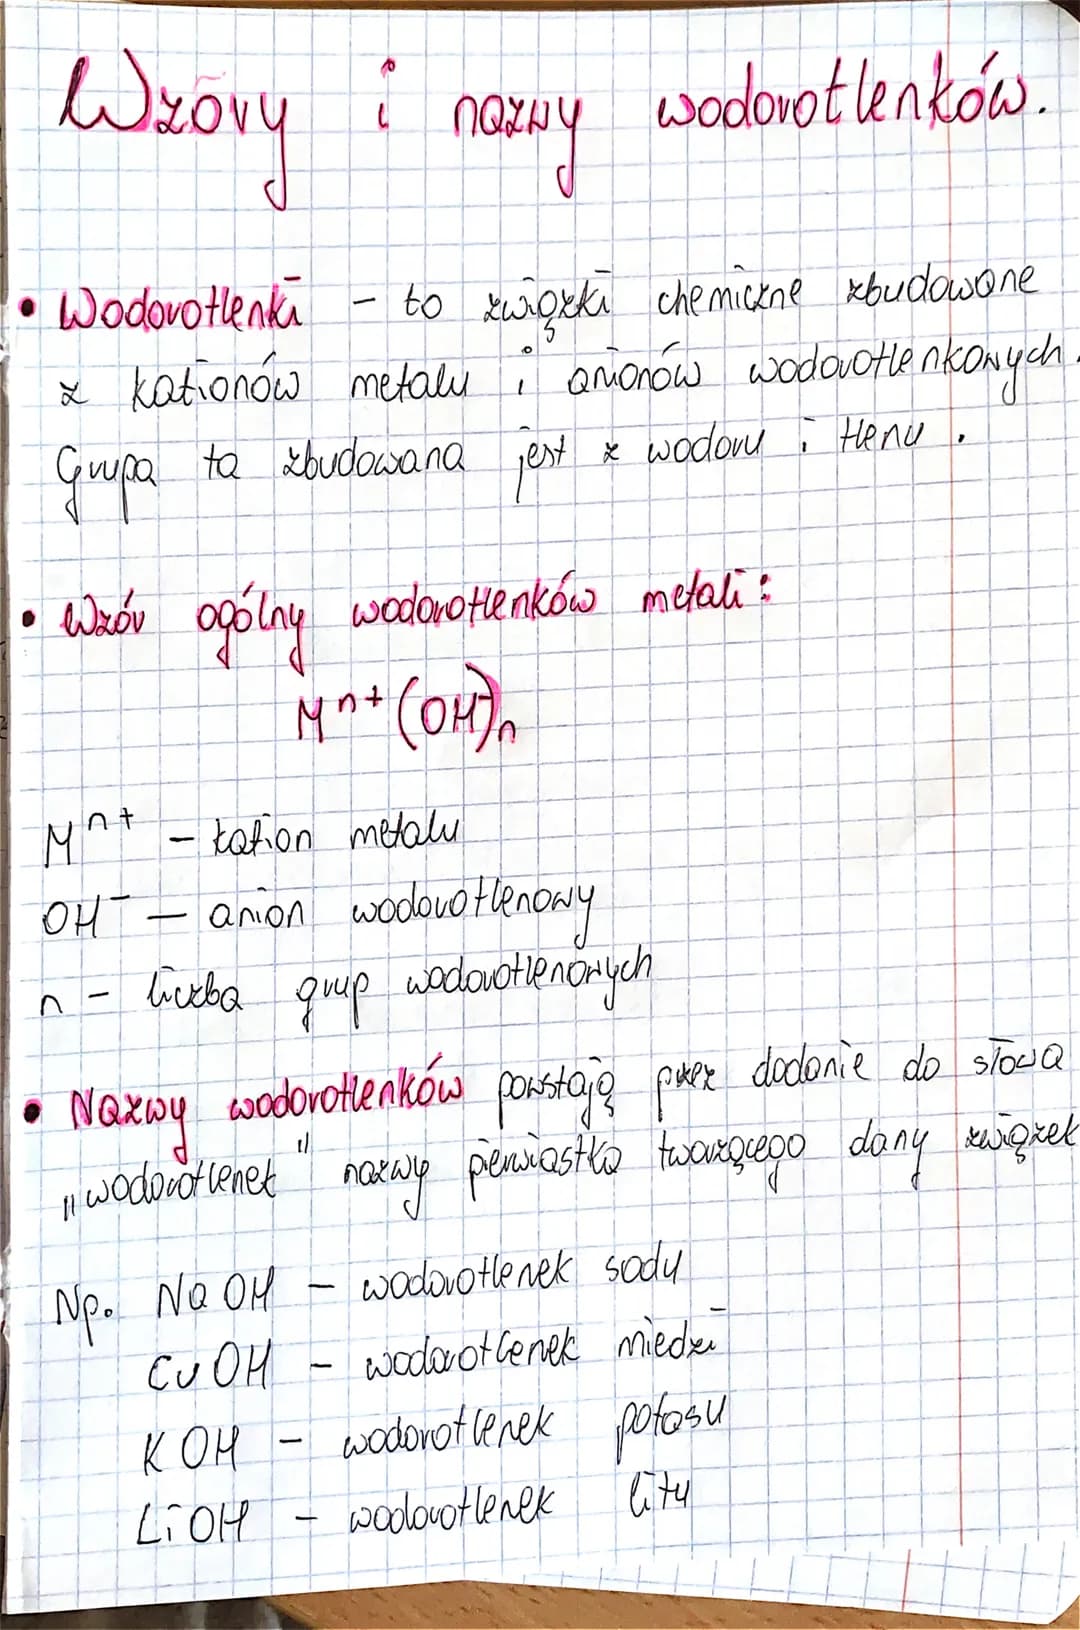 Wzory i nazwy wodorotlenków.
• Wodorotlenki – to związki chemiczne zbudowane
z kationów metalu i anionów wodorotlenkowych.
Grupa ta zbudowana jest z wodoru i tlenu.
• Wzór ogólny wodorotlenków metali:
Mⁿ⁺(OH)ₙ
Mⁿ⁺ – kation metalu
OH⁻ – anion wodorotlenowy
n – liczba grup wodorotlenowych
• Nazwy wodorotlenków powstają przez dodanie do słowa
„wodorotlenek" nazwy pierwiastka tworzącego dany związek
Np. NaOH – wodorotlenek sodu
CuOH – wodorotlenek miedzi
KOH – wodorotlenek potasu
LiOH – wodorotlenek litu